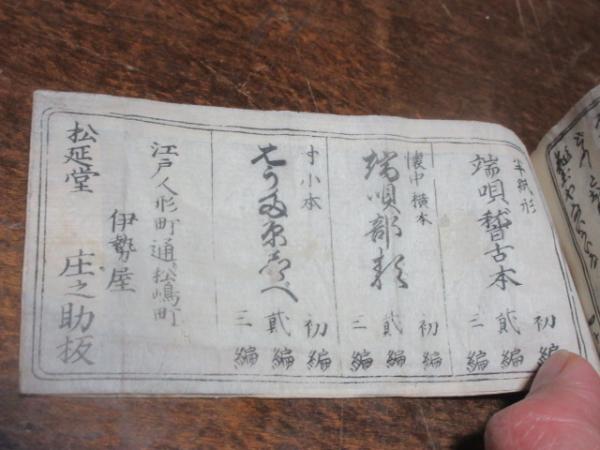 半紙形
端唄稽古本
初編
貳編
三編
懐中横本
端唄部類
初編
貳編
三編
寸小本
初編
貳編
三編
江戸人形町通松嶋町
伊勢屋
松延堂 庄之助板